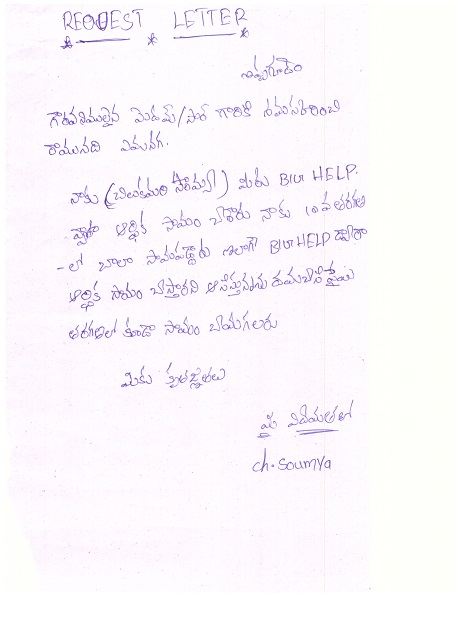 REQUEST LETTER
ఇప్పగూడెం
గౌరవనీయులైన మేడమ్/సార్ గారికి నమస్కరించి
రాయునది ఏమనగా.
నాకు (చిలుకమారి సౌమ్య) మీరు BIUI HELP.
ద్వారా ఆర్థిక సాయం చేశారు నాకు 10వ తరగతి
-లో చాలా సాయపడ్డారు ఇలాగే BIUI HELP ద్వారా
ఆర్థిక సాయం చేస్తారని ఆశిస్తున్నాను దయచేసి పై
తరగతిలో కూడా సాయం చేయగలరు
మీకు కృతజ్ఞతలు
మీ విధేయతలో
ch. soumya